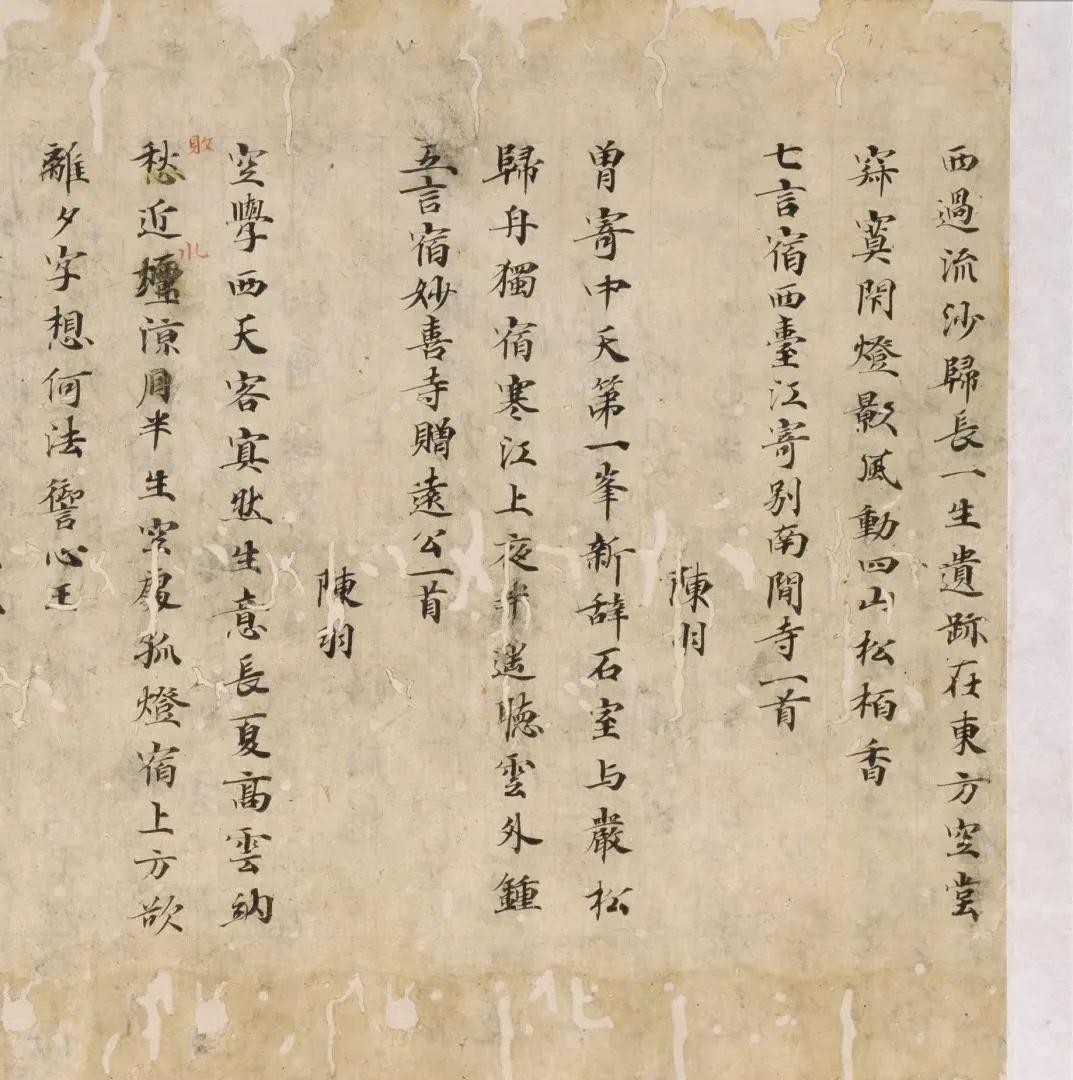 西過流沙歸長一生遺跡在東方空嘗
寂寞閇燈影風動四山松栢香
七言宿西臺江寄別南閒寺一首
陳羽
曽寄中天第一峯新辞石室与嚴松
歸舟獨宿寒江上夜半遥聴雲外鍾
五言宿妙喜寺贈遠公一首
陳羽
空學西天客寘然生意長夏髙雲納
愁近壇涼月半生空殿孤燈宿上方欲
離夕字想何法詧心王